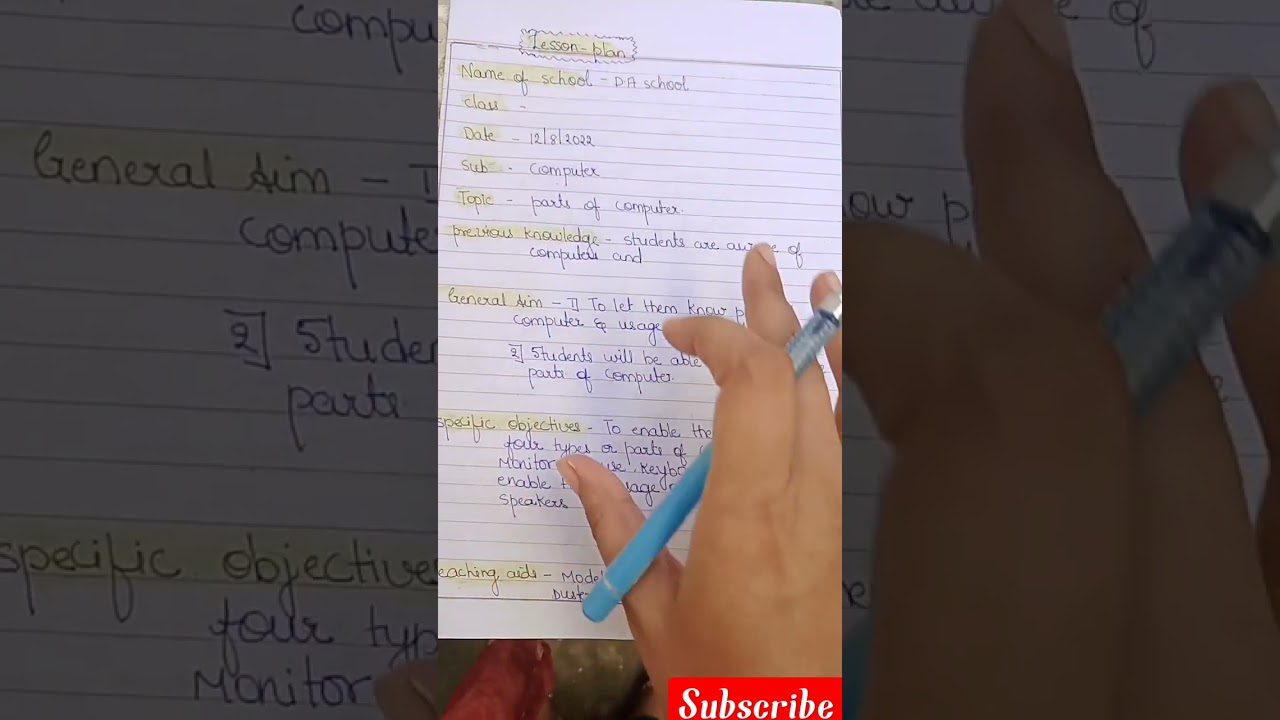 Lesson-plan
Name of school - DA school
class -
Date - 12/8/2022
Sub - Computer
Topic - parts of computer.
previous knowledge - students are of
computers and
General Aim - 1] To let them know
computer & usage
2] Students will be able
parts of computer.
specific objectives - To enable
four types or parts of
Monitor
enable
speakers
aids -
Subscribe